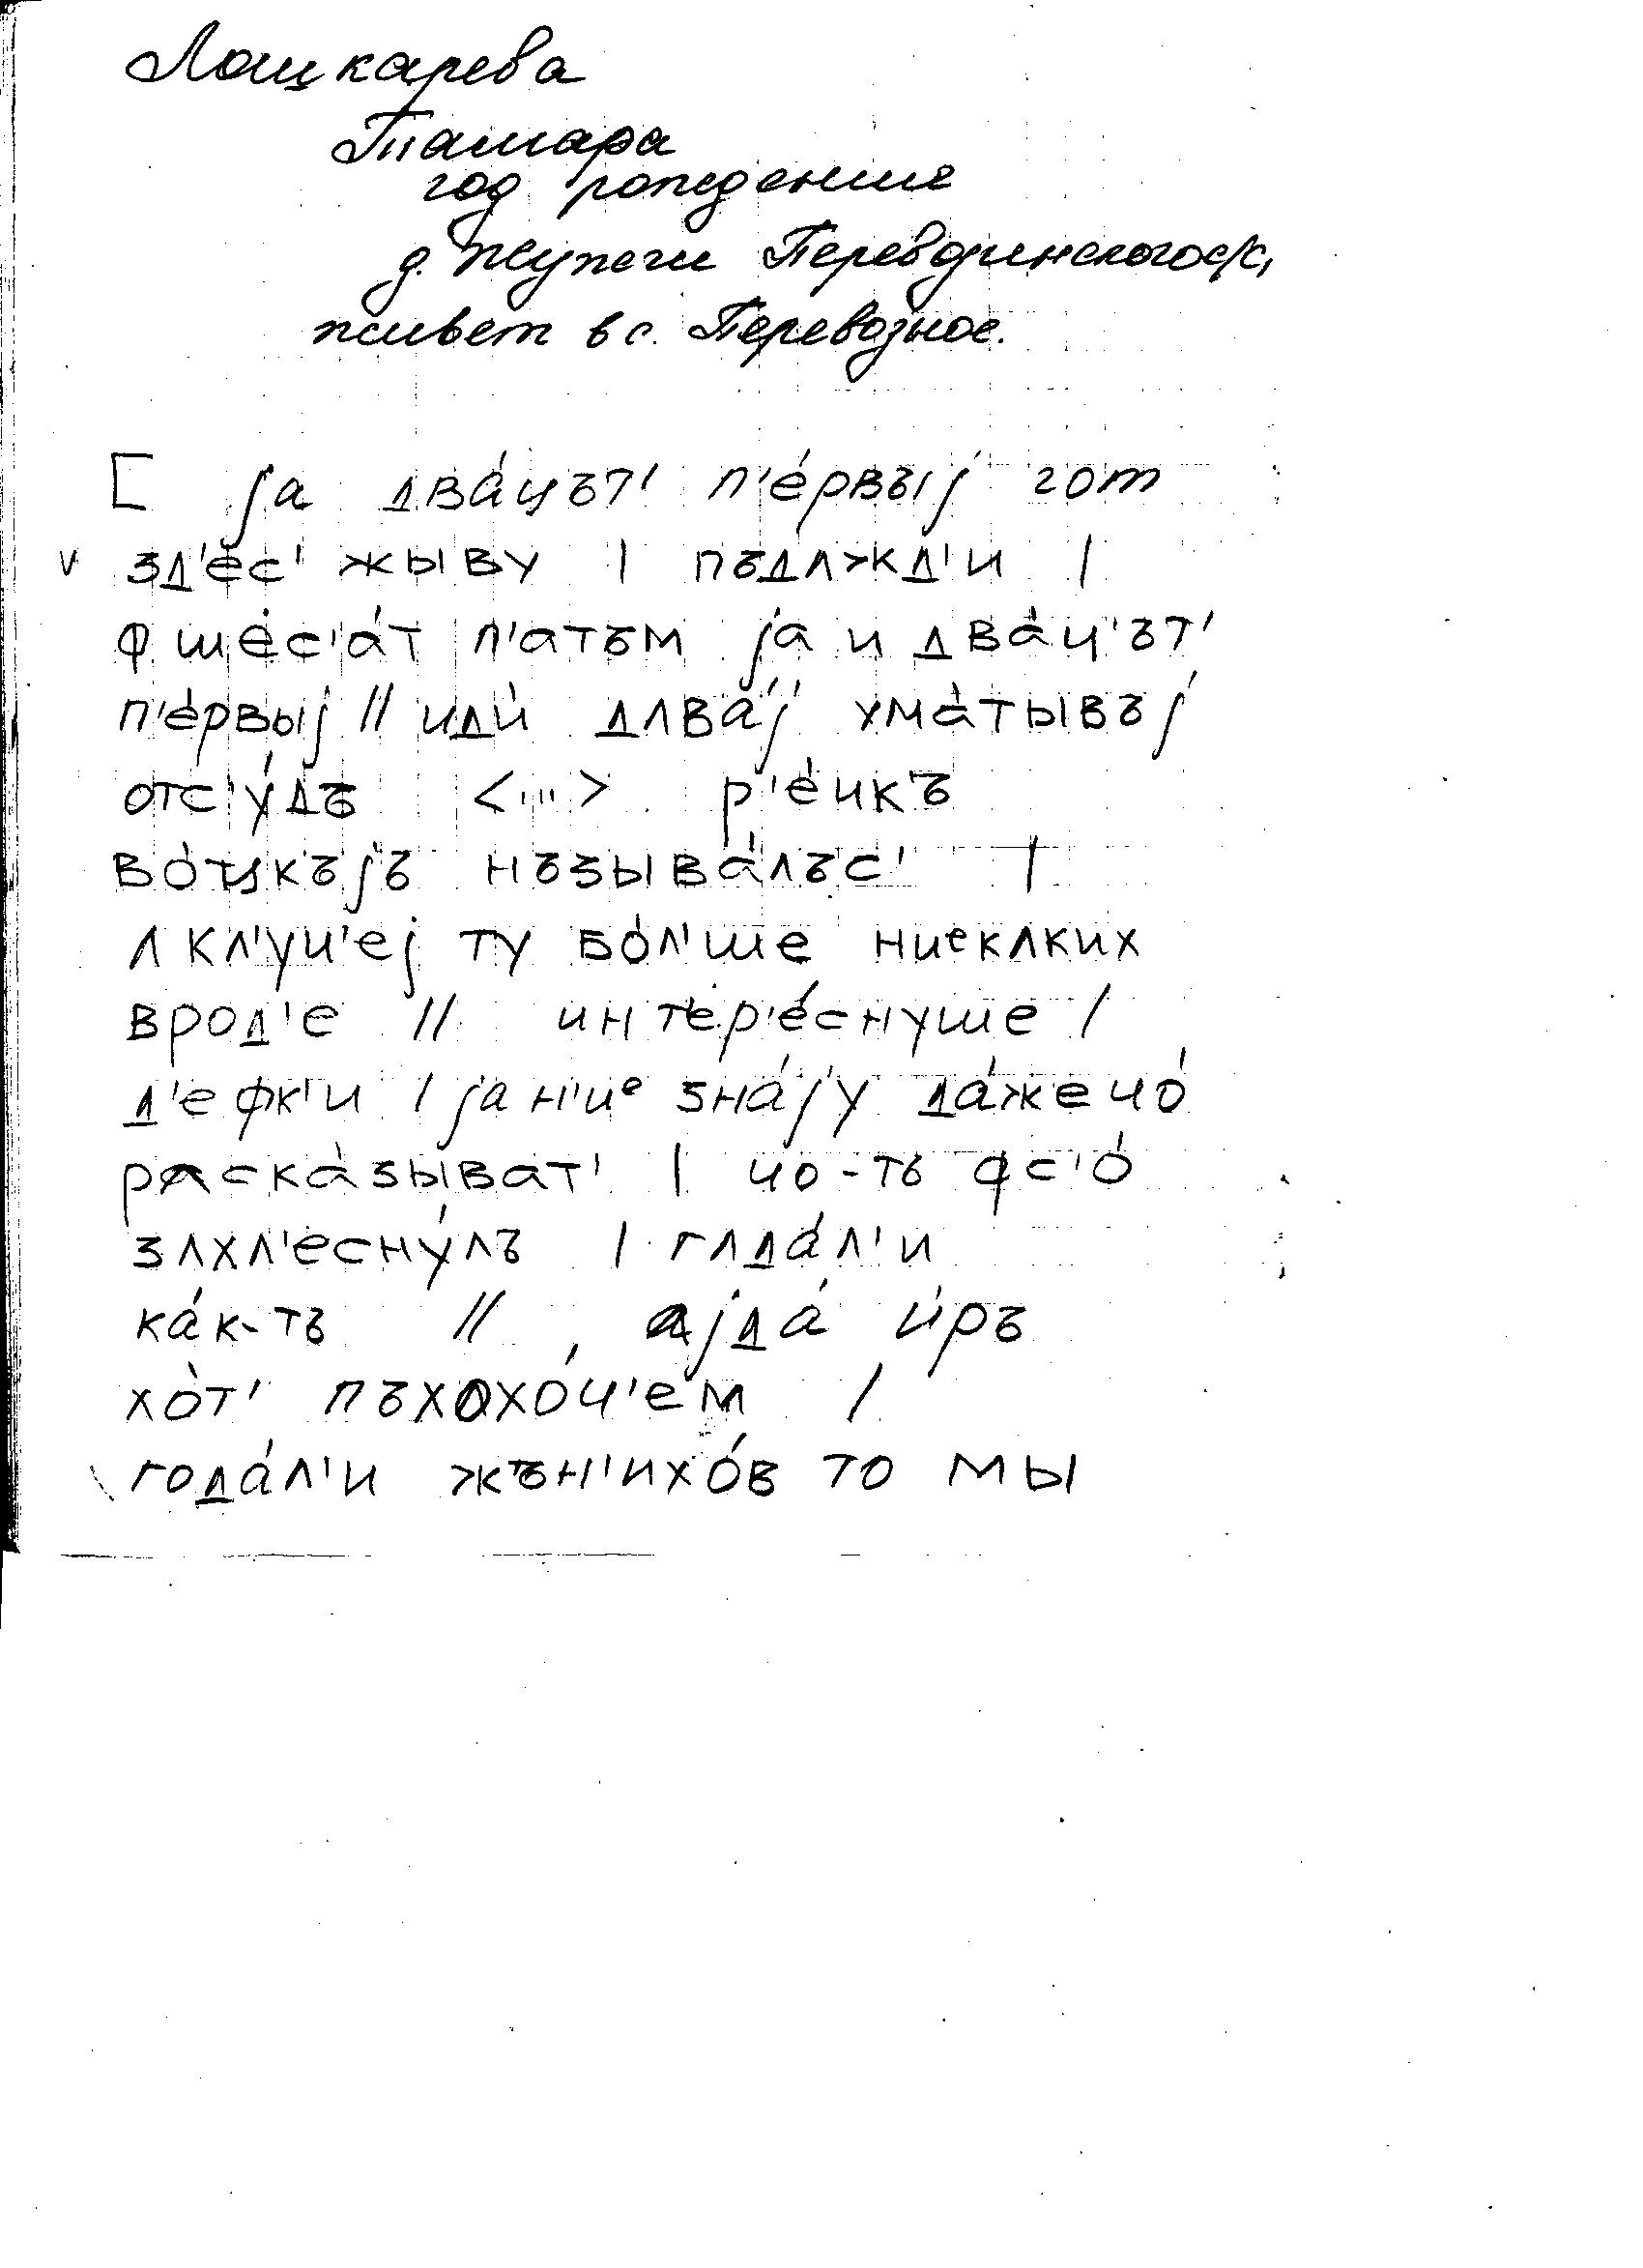 Лошкарева
Тамара
год рождение
д. Жужеги Перевозинского с/с,
живет в с. Перевозное.
[ jа два́цът' п'е́рвъıj гот
v зд'ес' жыву | пъдʌжд'и |
ф ше́с'а́т п'атъм jа́ и два́ц'ът'
п'е́рвыj // иди́ дʌва́j хма́тывъj
отс'у́дъ <...> р'е́чкъ
во́цкъjъ нъзыва́лъс' |
ʌ кл'уч'еj ту бо́л'ше ниᵉкʌких
врод'е // интер'е́снуше /
д'ефк'и / jа н'иᵉ зна́jу да́же чо́
раска́зыват' | чо-тъ фс'о́
зʌхл'есну́лъ | гʌда́л'и
ка́к-тъ // аjда́ и́ръ
хо̀т' пъхохо́ч'ем /
года́л'и жън'ихо́в то мы